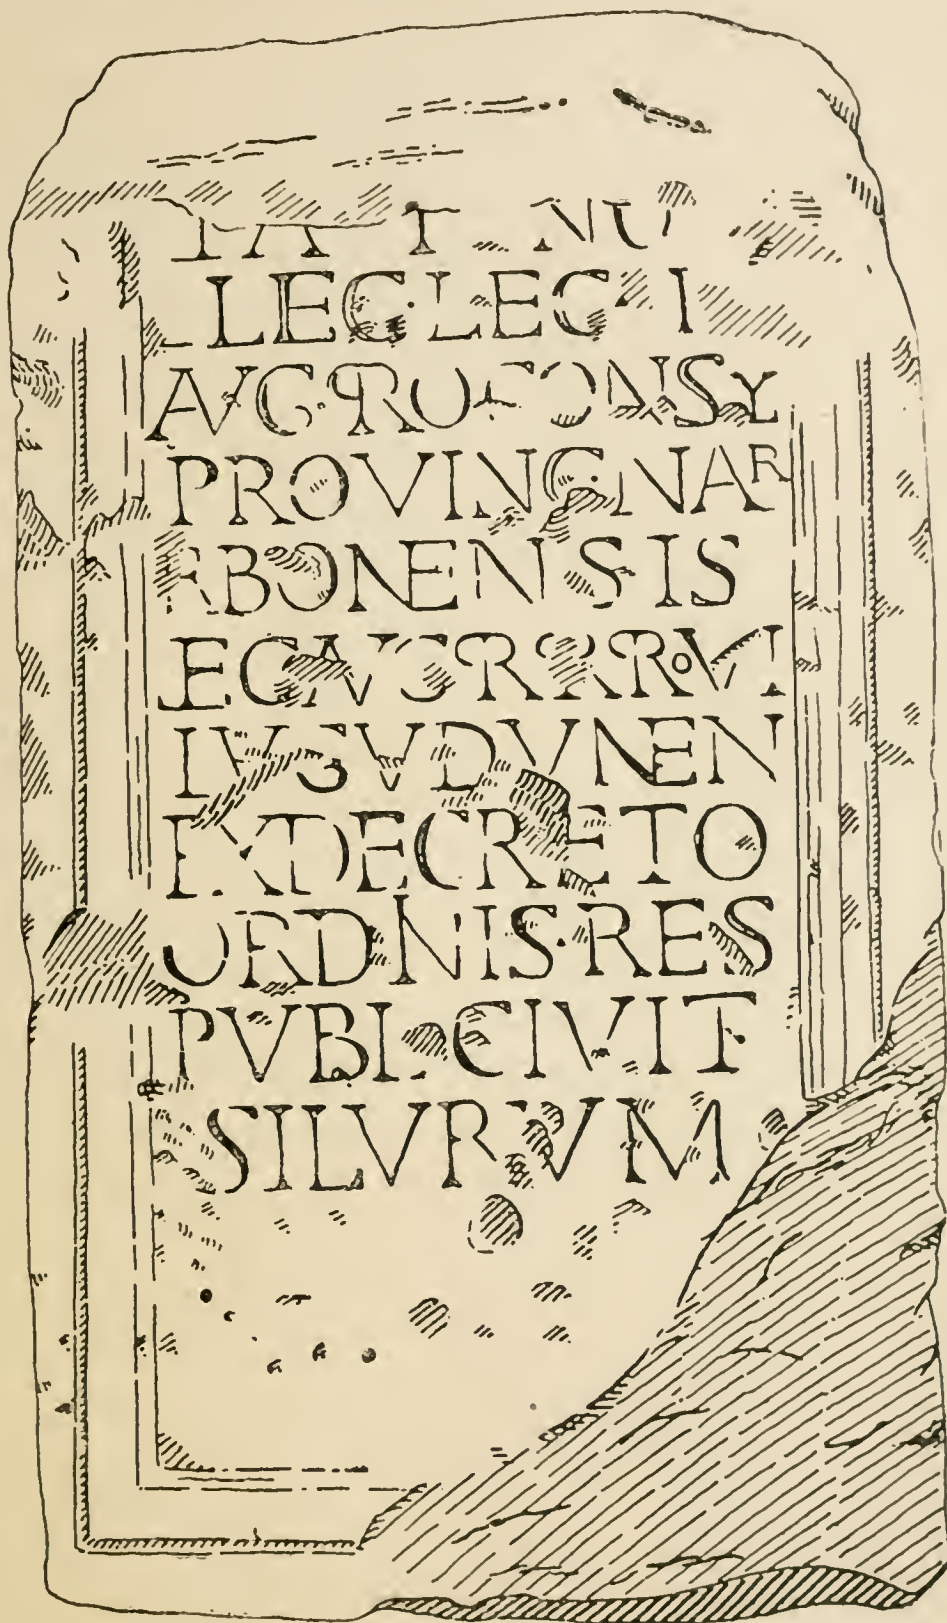 LEG·LEG·I
PROVINC·NAR
BONENSIS
LEG AVG PR PR PROVI
LVGVDVNEN
EX DECRETO
ORDNIS·RES
PVBL·CIVIT
SILVRVM